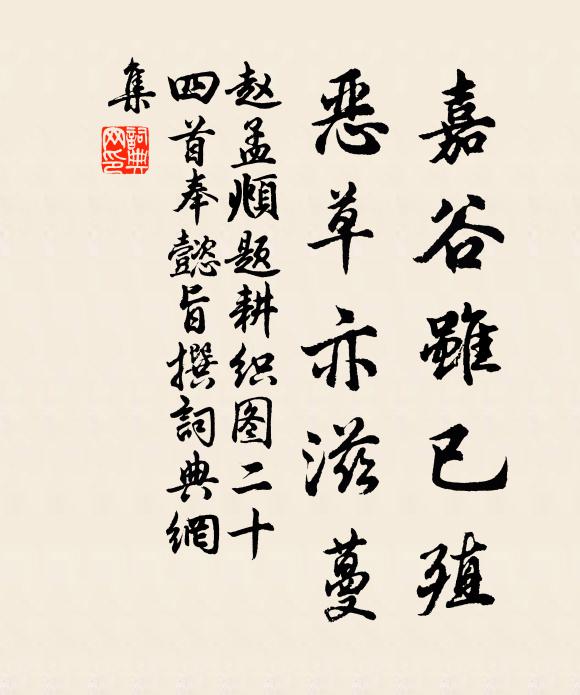 嘉谷雖已殖
恶草亦滋蔓
赵孟頫题耕织图二十
四首奉懿旨撰詞典網
集
詞典网印